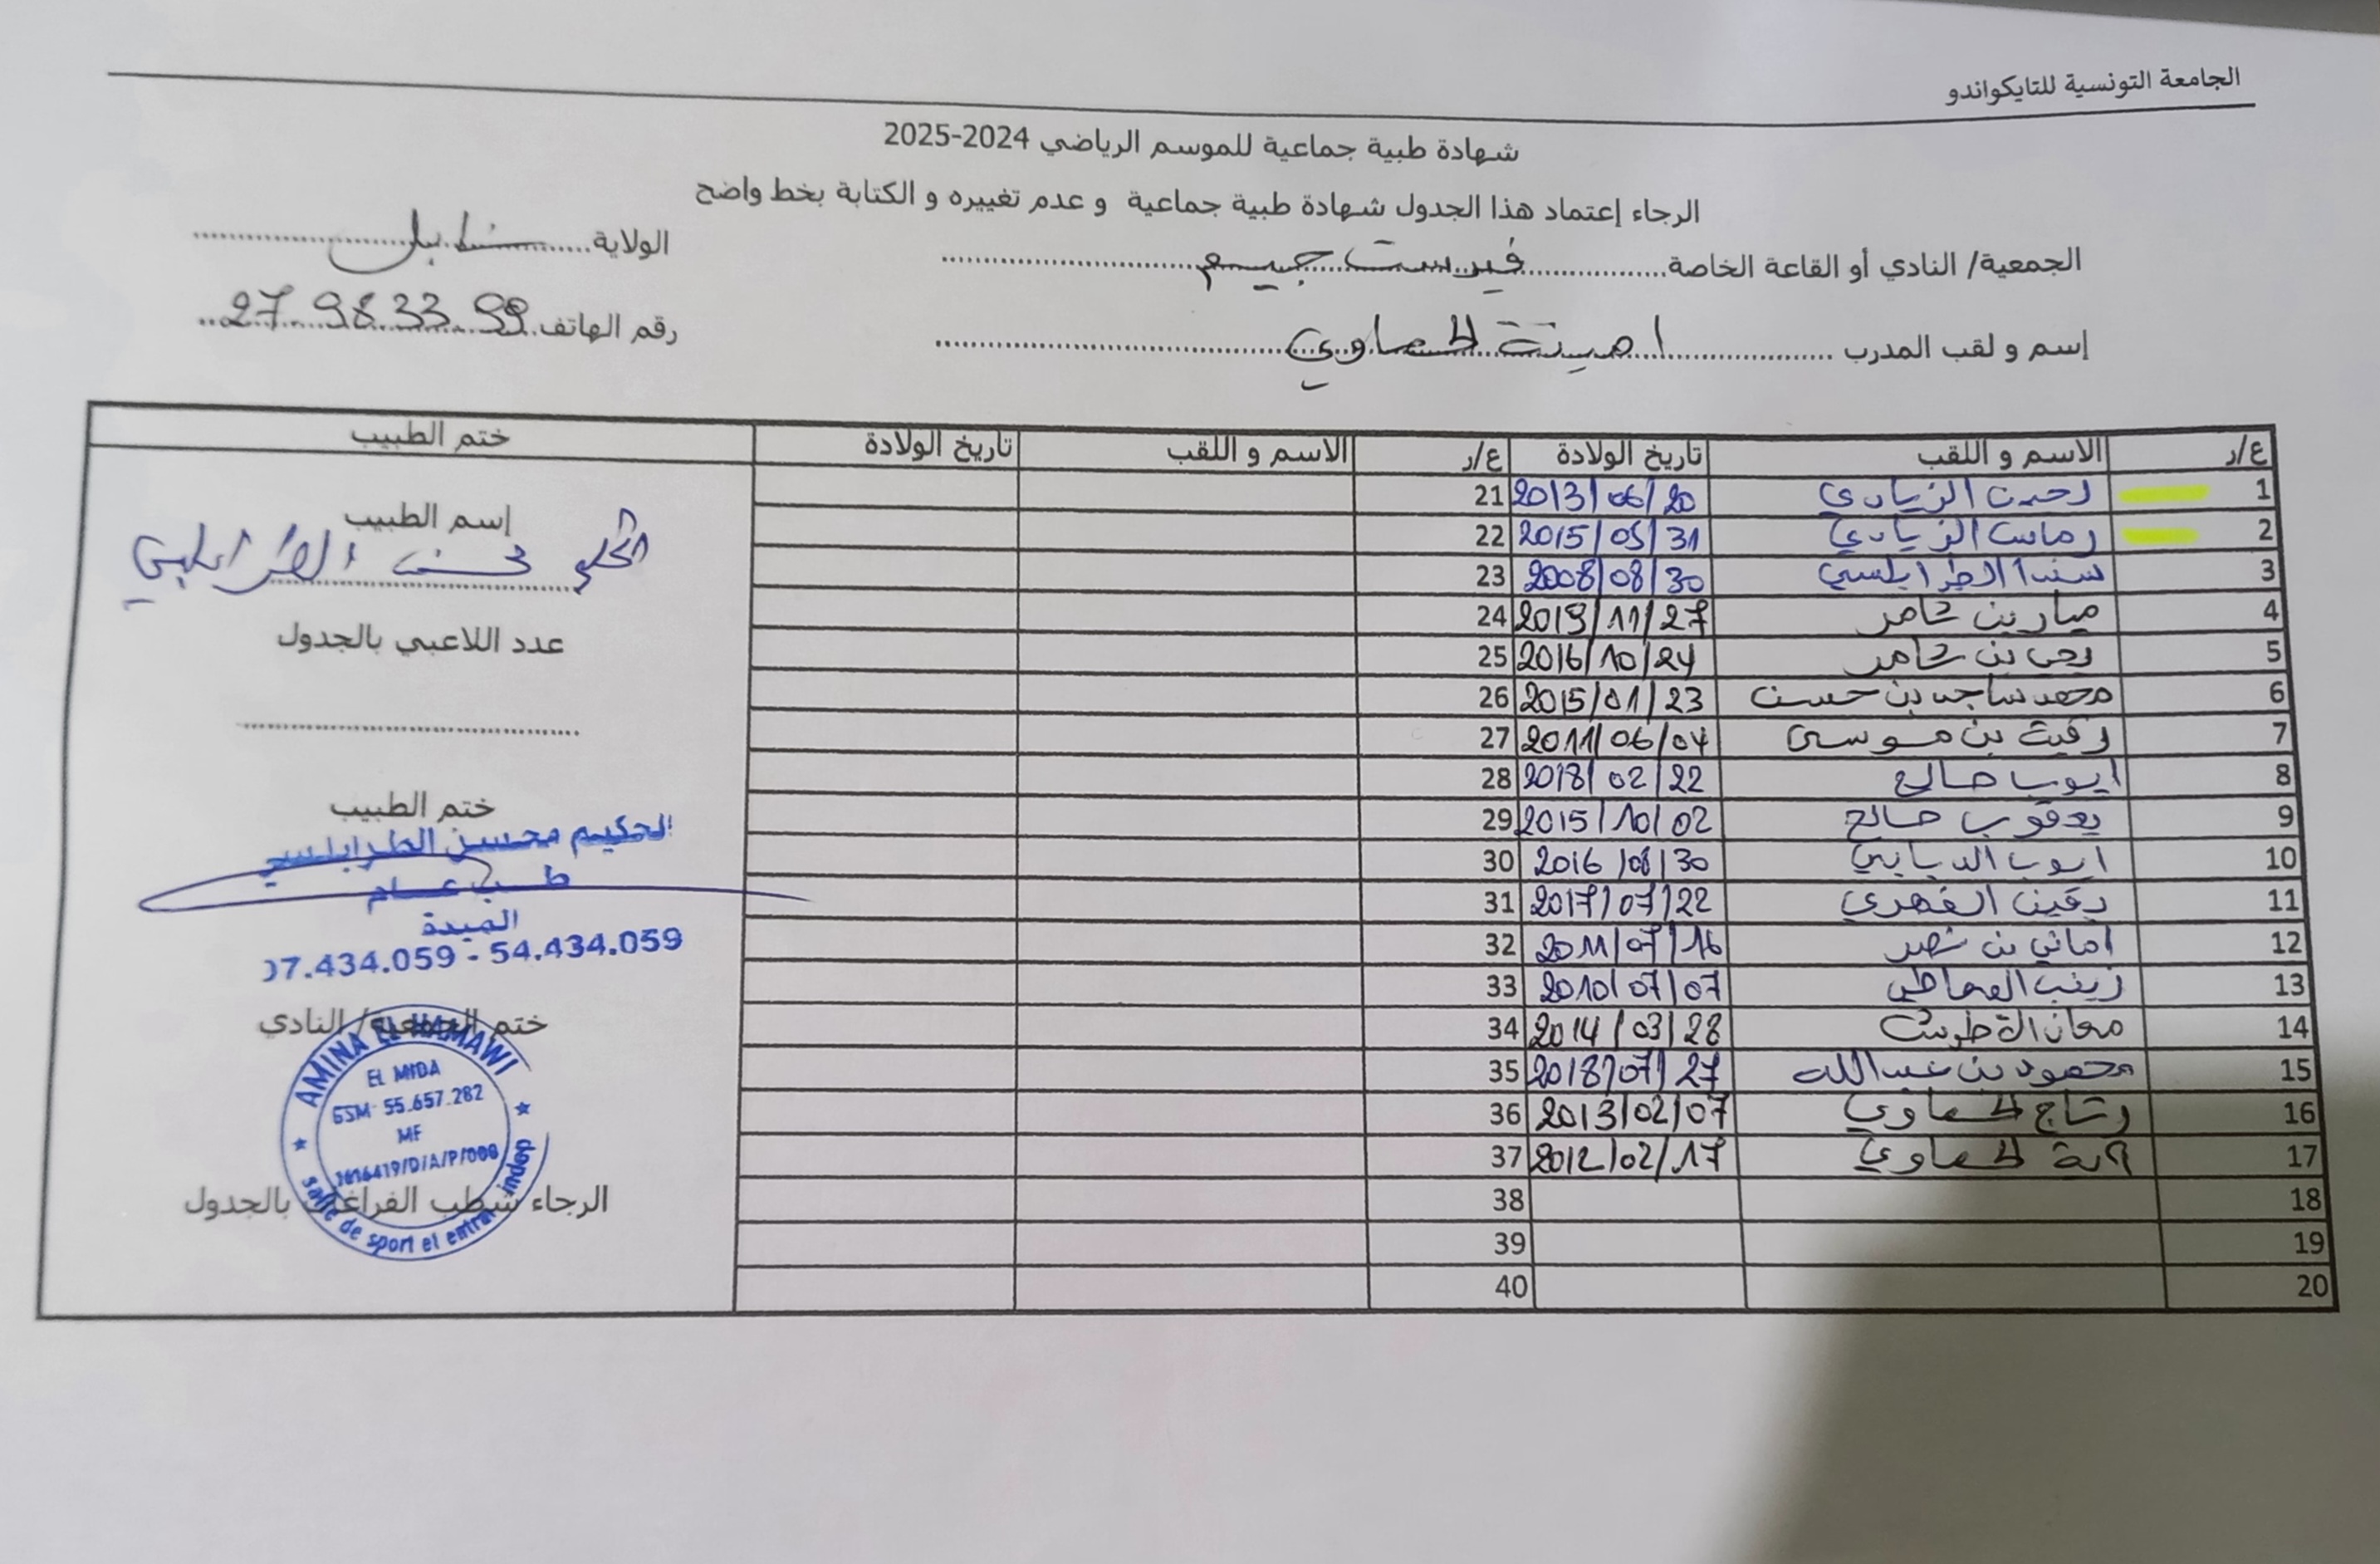 الجامعة التونسية للتايكواندو
شهادة طبية جماعية للموسم الرياضي 2024-2025
الرجاء إعتماد هذا الجدول شهادة طبية جماعية و عدم تغييره و الكتابة بخط واضح
الجمعية/ النادي أو القاعة الخاصة فيرست جيم الولاية نابل
إسم و لقب المدرب امينة الحماوي رقم الهاتف 27 98 33 99
ع/ر الاسم و اللقب تاريخ الولادة ع/ر الاسم و اللقب تاريخ الولادة ختم الطبيب
1 الزيادي 2013/06/20 21
2 الزيادي 2015/05/31 22
3 سندا الطرابلسي 2008/08/30 23
4 ميار بن عامر 2019/11/27 24
5 بن عامر 2016/10/24 25
6 محمد ساجد بن حسن 2015/01/23 26
7 بن موسى 2011/06/04 27
8 ايوب صالح 2018/02/22 28
9 يعقوب صالح 2015/10/02 29
10 ايوب الديابي 2016/08/30 30
11 يقين الفهري 2017/07/22 31
12 اماني بن نصر 2011/07/16 32
13 زينب 2010/07/07 33
14 2014/03/28 34
15 محمود بن عبد الله 2018/07/27 35
16 رتاج الحماوي 2013/02/07 36
17 آية الحماوي 2012/02/17 37
18 38
19 39
20 40
إسم الطبيب
محسن الطرابلسي
عدد اللاعبي بالجدول
ختم الطبيب
الحكيم محسن الطرابلسي
طب عام
الميدة
54.434.059 - 97.434.059
ختم الجمعية/ النادي
AMINA EL HAMAWI
EL MIDA
GSM: 55.657.282
MF
salle de sport et entrai indep
الرجاء شطب الفراغات بالجدول